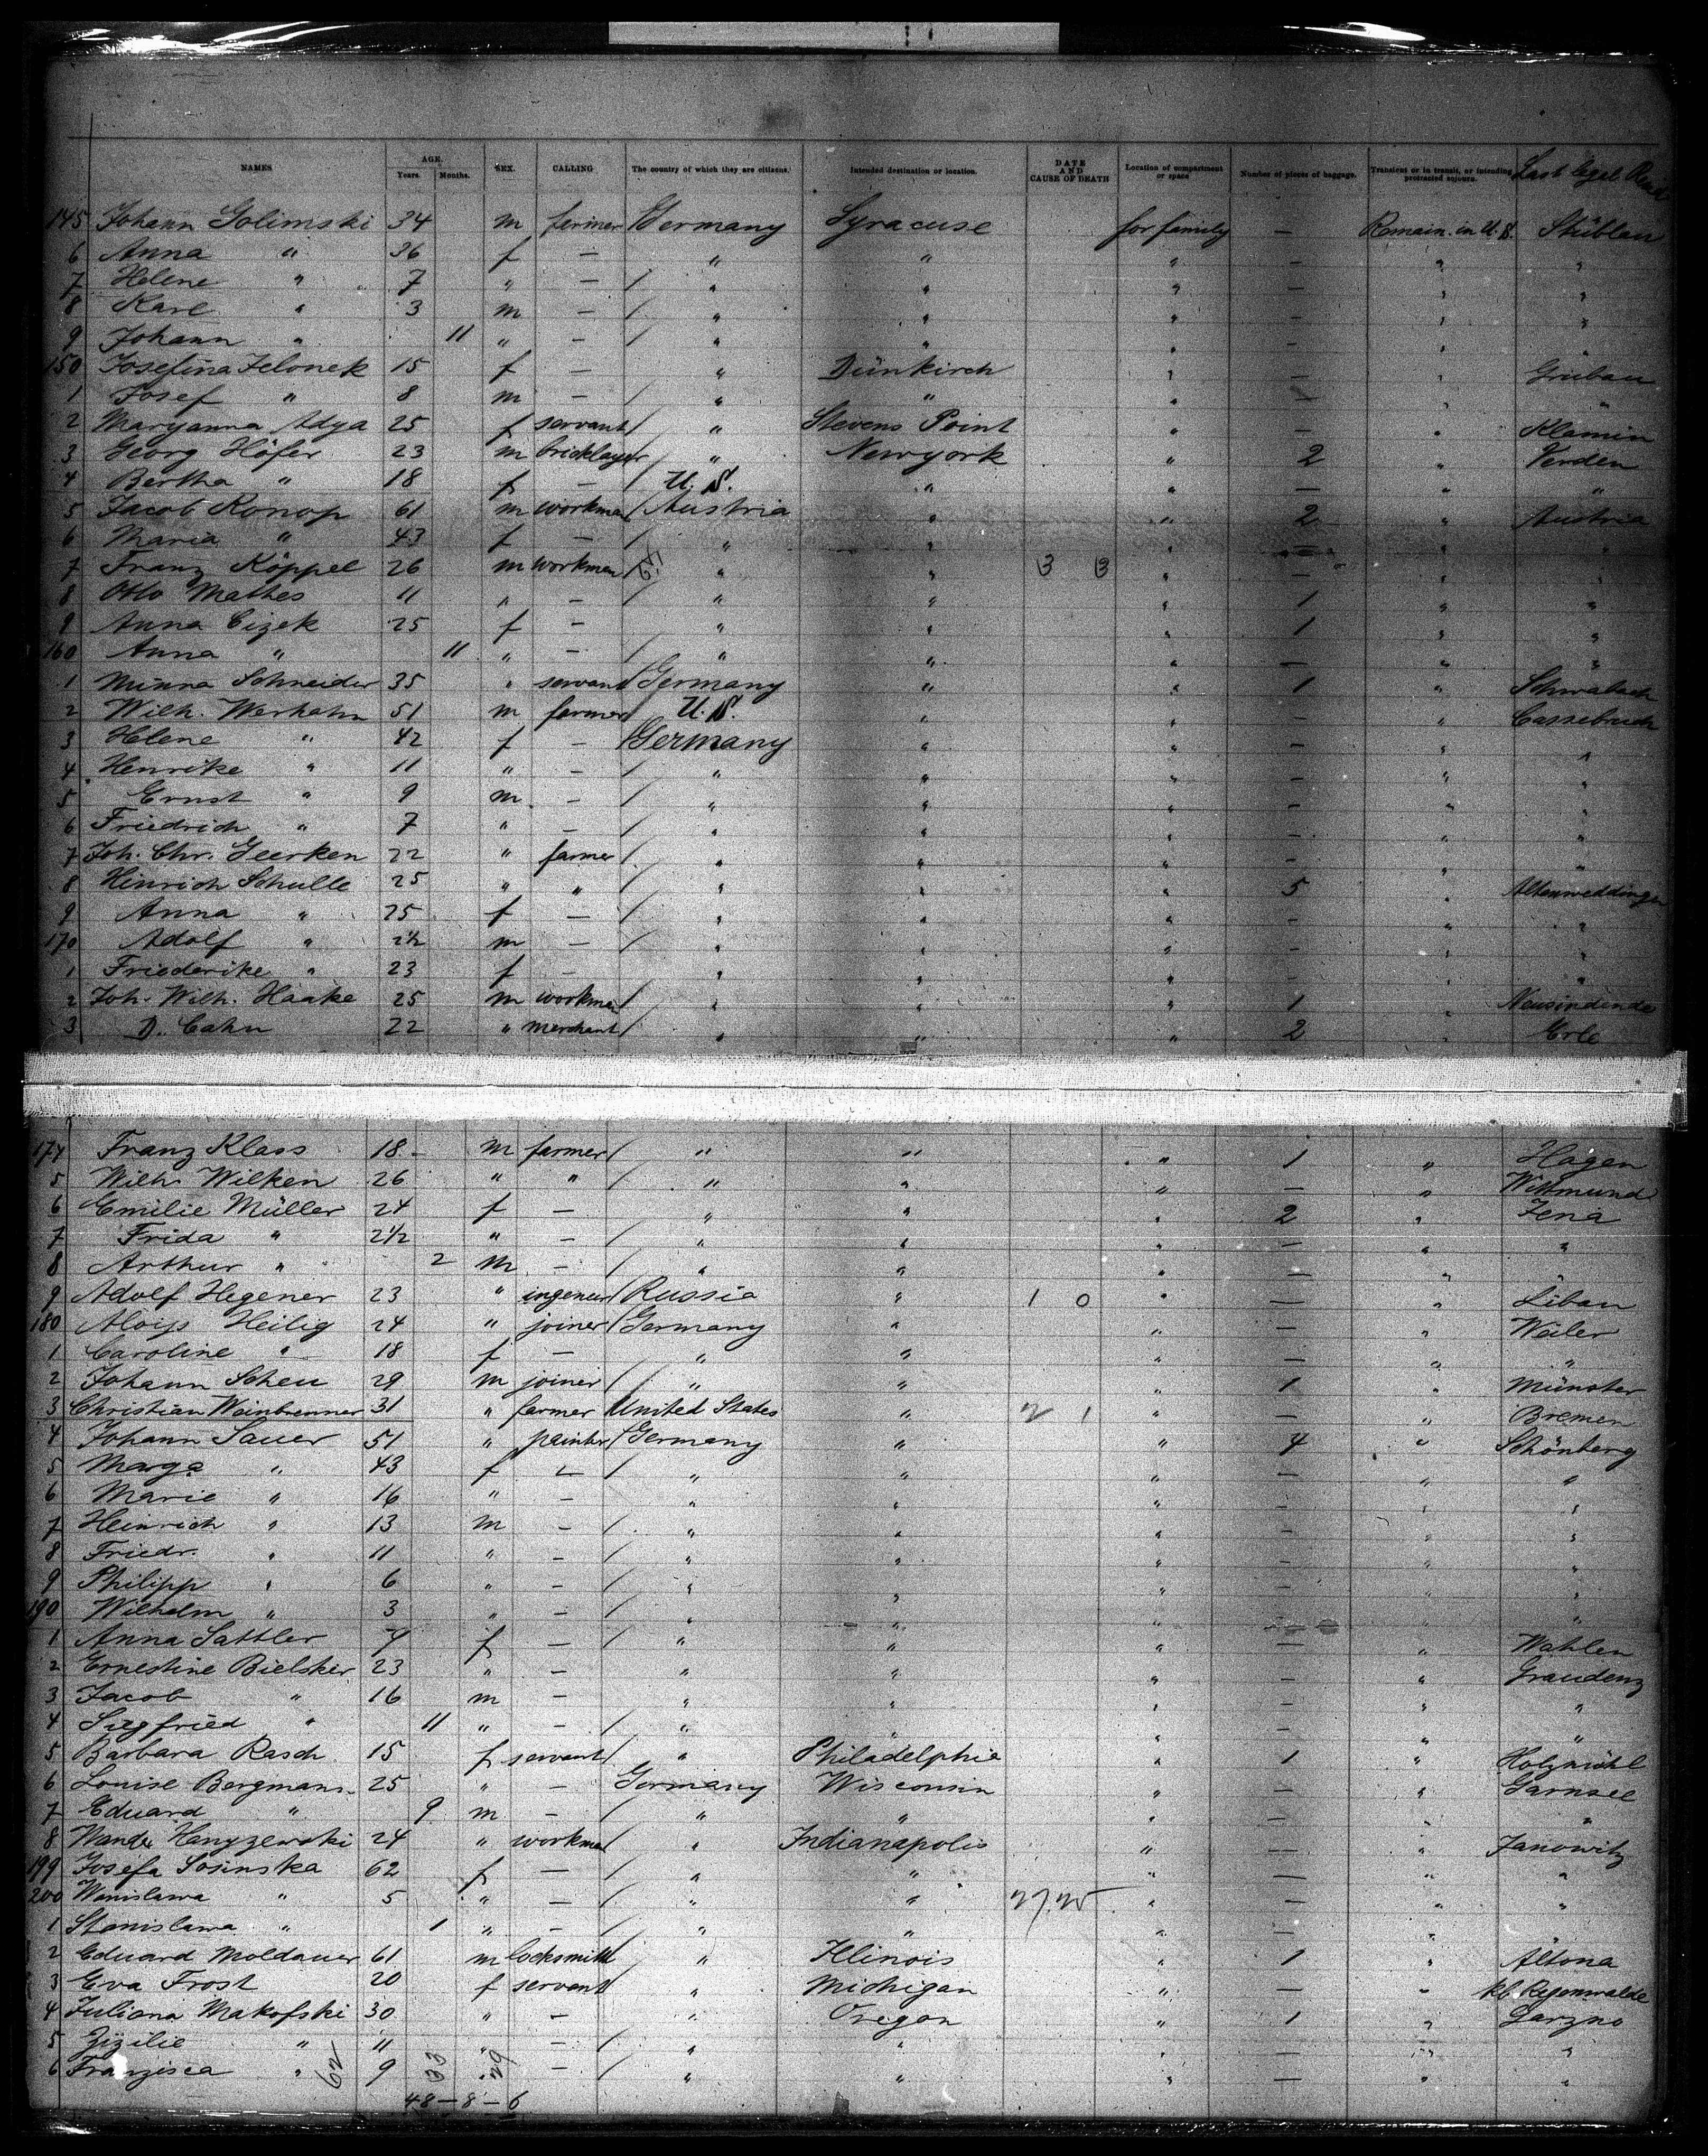 NAMES AGE. Years. Months. SEX. CALLING The country of which they are citizens. Intended destination or location. DATE AND CAUSE OF DEATH Location of compartment or space Number of pieces of baggage. Transient or in transit, or intending protracted sojourn. Last legal
145 Johann Golimski 34 m farmer Germany Syracuse for family — Remain in U.S. Stüblau
6 Anna " 36 f — " " " — " "
7 Helene " 7 " — " " " — " "
8 Karl " 3 m — " " " — " "
9 Johann " 11 " — " " " — " "
150 Josefina Zelonek 15 f — " Dünkirch " — " Grübau
1 Josef " 8 m — " " " — " "
2 Maryanna Adya 25 f servant " Stevens Point " — " Klamin
3 Georg Höfer 23 m bricklayer " Newyork " 2 " Verden
4 Bertha " 18 f — U.S. " " — " "
5 Jacob Konop 61 m workman Austria " " 2 " Austria
6 Maria " 43 f — " " " — " "
7 Franz Köppel 26 m workman " " 3 3 " — " "
8 Otto Mathes 11 " — " " " 1 " "
9 Anna Cizek 25 f — " " " 1 " "
160 Anna " 11 " — " " " — " "
1 Minna Schneider 35 " servant Germany " " 1 " Schwabach
2 Wilh. Werhahn 51 m farmer U.S. " " — " Cassebruch
3 Helene " 42 f — Germany " " — " "
4 Henrike " 11 " — " " " — " "
5 Ernst " 9 m — " " " — " "
6 Friedrich " 7 " — " " " — " "
7 Joh. Chr. Geerken 22 " farmer " " " — " "
8 Hinrich Schulle 25 " " " " " 5 " Altenweddingen
9 Anna " 25 f — " " " — " "
170 Adolf " 2½ m — " " " — " "
1 Friederike " 23 f — " " " — " "
2 Joh. Wilh. Haake 25 m workman " " " 1 "
3 D. Cahn 22 " merchant " " " 2 " Erle
174 Franz Klass 18 m farmer " " " 1 " Hagen
5 Wilh. Wilken 26 " " " " " — " Wittmund
6 Emilie Müller 24 f — " " " 2 " Jena
7 Frida " 2½ " — " " " — " "
8 Arthur " 2 m — " " " — "
9 Adolf Hegener 23 " ingeneur Russia " 1 0 " — " Libau
180 Aloijs Heilig 24 " joiner Germany " " — " Weiler
1 Caroline " 18 f — " " " — " "
2 Johann Scheu 29 m joiner " " " 1 " Münster
3 Christian Weinbrenner 31 " farmer United States " 2 1 " — " Bremen
4 Johann Sauer 51 " painter Germany " " 4 " Schönberg
5 Marga " 43 f — " " " — " "
6 Marie " 16 " — " " " — " "
7 Heinrich " 13 m — " " " — " "
8 Friedr. " 11 " — " " " — " "
9 Philipp " 6 " — " " " — " "
190 Wilhelm " 3 " — " " " — " "
1 Anna Sattler 9 f — " " " — " Wahlen
2 Ernestine Bielsker 23 " — " " " — " Graudenz
3 Jacob " 16 m — " " " — " "
4 Siegfried " 11 " — " " " — " "
5 Barbara Rasch 15 f servant " Philadelphia " 1 " Holzmühl
6 Louise Bergmann 25 " — Germany Wisconsin " — " Garnsee
7 Eduard " 9 m — " " " — " "
8 Hanyzewski 24 " workman " Indianapolis " — " Janowitz
199 Josefa Sosinska 62 f — " " " — " "
200 Wanislawa " 5 " — " " 27.25 " — " "
1 Stanislawa " 1 " — " " " — " "
2 Eduard Moldauer 61 m locksmith " Illinois " 1 " Altona
3 Eva Frost 20 f servant " Michigan " — " kl. Regenwalde
4 Juliana Makofski 30 " — " Oregon " 1 " Garzno
5 Zizilie " 11 " — " " " — " "
6 Franzisca " 62 9 33 " 29 — " " " — " "
48 — 8 — 6